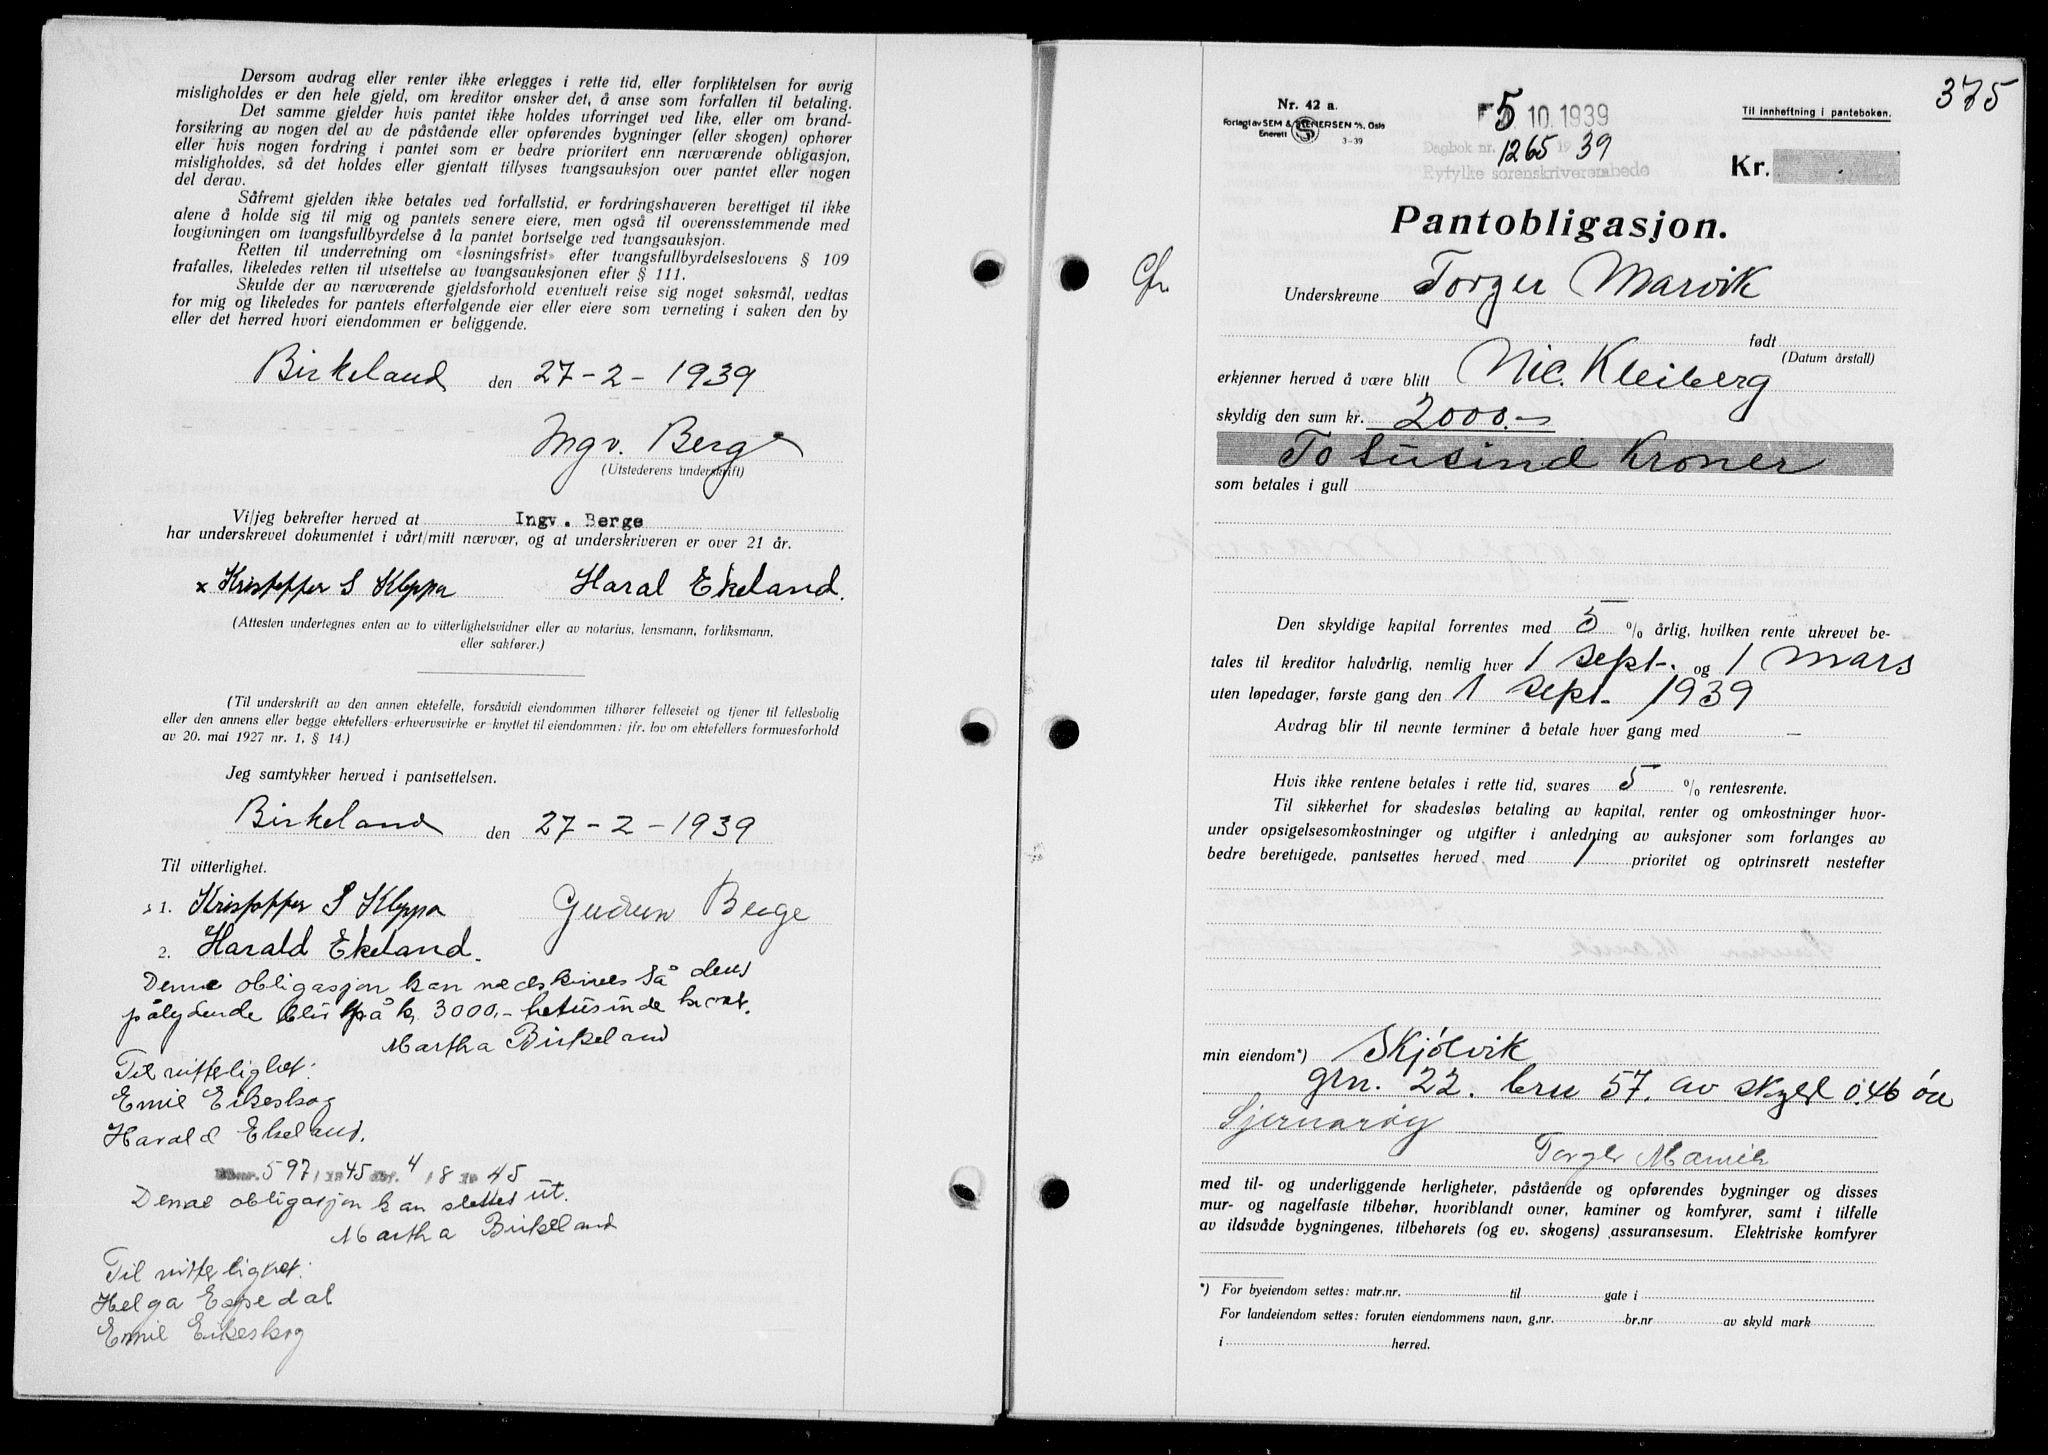 Dersom avdrag eller renter ikke erlegges i rette tid, eller forpliktelsen for øvrig
misligholdes er den hele gjeld, om kreditor ønsker det, å anse som forfallen til betaling.
Det samme gjelder hvis pantet ikke holdes uforringet ved like, eller om brand-
forsikring av nogen del av de påstående eller opførendes bygninger (eller skogen) ophører
eller hvis nogen fordring i pantet som er bedre prioritert enn nærværende obligasjon,
misligholdes, så det holdes eller gjentatt tillyses tvangsauksjon over pantet eller nogen
del derav.
Såfremt gjelden ikke betales ved forfallstid, er fordringshaveren berettiget til ikke
alene å holde sig til mig og pantets senere eiere, men også til overensstemmende med
lovgivningen om tvangsfullbyrdelse å la pantet bortselge ved tvangsauksjon.
Retten til underretning om «løsningsfrist» efter tvangsfullbyrdelseslovens § 109
frafalles, likeledes retten til utsettelse av tvangsauksjonen efter § 111.
Skulde der av nærværende gjeldsforhold eventuelt reise sig noget søksmål, vedtas
for mig og likeledes for pantets efterfølgende eier eller eiere som verneting i saken den by
eller det herred hvori eiendommen er beliggende.
Birkeland den 27-2-1939
Ingv. Berge
(Utstederens underskrift)
Vi/jeg bekrefter herved at Ingv. Berge
har underskrevet dokumentet i vårt/mitt nærvær, og at underskriveren er over 21 år.
x Kristoffer S Kleppa Haral Ekeland.
(Attesten undertegnes enten av to vitterlighetsvidner eller av notarius, lensmann, forliksmann,
eller sakfører.)
(Til underskrift av den annen ektefelle, forsåvidt eiendommen tilhører felleseiet og tjener til fellesbolig
eller den annens eller begge ektefellers erhvervsvirke er knyttet til eiendommen: jfr. lov om ektefellers formuesforhold
av 20. mai 1927 nr. 1, § 14.)
Jeg samtykker herved i pantsettelsen.
Birkeland den 27-2-1939
Til vitterlighet.
1. Kristoffer S Kleppa Gudrun Berge
2. Harald Ekeland.
Denne obligasjon kan nedskrives så dens
pålydende blir på kr 3000,- tretusinde kroner.
Martha Birkeland
Til vitterlighet:
Emil Eikeskog
Harald Ekeland.
597/1945 4/8 1945
Denne obligasjon kan slettes ut.
Martha Birkeland
Til vitterlighet:
Helga Espedal
Emil Eikeskog
375
Nr. 42 a.
Forlagt av SEM & STENERSEN A/S, Oslo
Enerett
3-39
5 10.1939
Dagbok nr. 1265 1939
Ryfylke sorenskriverembede
Til innheftning i panteboken.
Kr.
Pantobligasjon.
Cfr
Underskrevne Torger Marvik
født
(Datum årstall)
erkjenner herved å være blitt Nic. Kleiberg
skyldig den sum kr. 2000.-
To tusind Kroner
som betales i gull
Den skyldige kapital forrentes med 5 % årlig, hvilken rente ukrevet be-
tales til kreditor halvårlig, nemlig hver 1 sept. og 1 mars
uten løpedager, første gang den 1 sept. 1939
Avdrag blir til nevnte terminer å betale hver gang med —
Hvis ikke rentene betales i rette tid, svares 5 % rentesrente.
Til sikkerhet for skadesløs betaling av kapital, renter og omkostninger hvor-
under opsigelsesomkostninger og utgifter i anledning av auksjoner som forlanges av
bedre berettigede, pantsettes herved med 1 prioritet og optrinsrett nestefter
min eiendom*) Skjölvik
grn. 22. brn 57. av skyld 0.46 öre
Sjernaröy
Torger Marvik
med til- og underliggende herligheter, påstående og opførendes bygninger og disses
mur- og nagelfaste tilbehør, hvoriblandt ovner, kaminer og komfyrer, samt i tilfelle
av ildsvåde bygningenes, tilbehørets (og ev. skogens) assuransesum. Elektriske komfyrer
*) For byeiendom settes: matr.nr. til gate i
For landeiendom settes: foruten eiendommens navn, g.nr. br.nr av skyld mark
i herred.